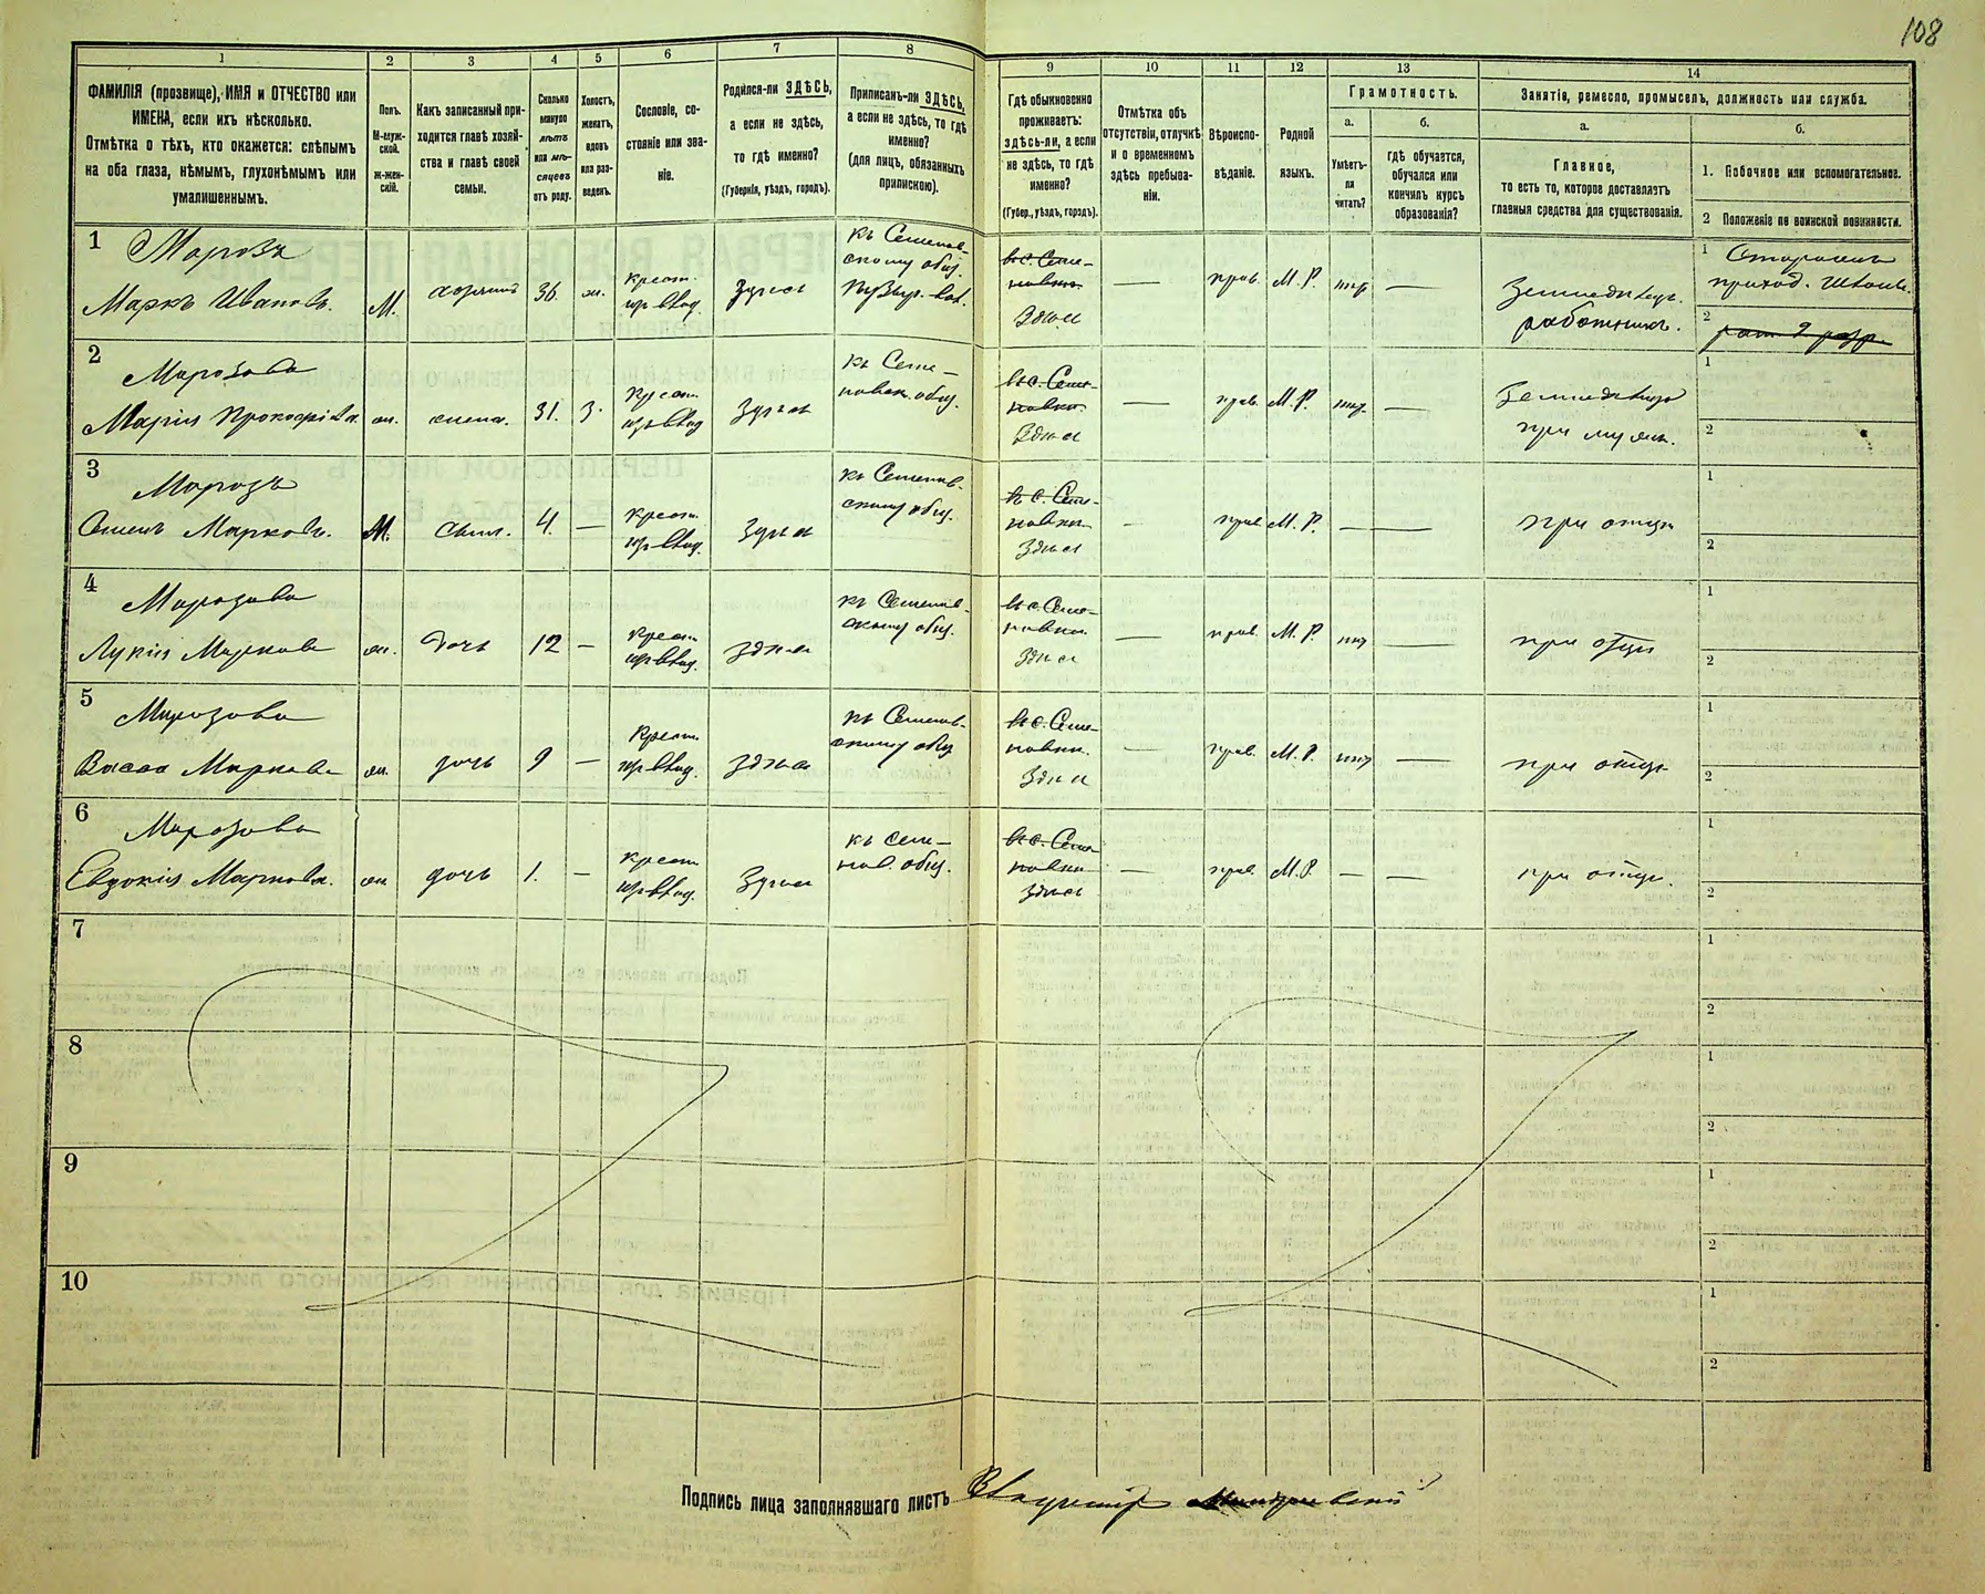 108
1
2
3
4
5
6
7
8
9
10
11
12
13
14
ФАМИЛІЯ (прозвище), ИМЯ и ОТЧЕСТВО или
ИМЕНА, если ихъ нѣсколько.
Отмѣтка о тѣхъ, кто окажется: слѣпымъ
на оба глаза, нѣмымъ, глухонѣмымъ или
умалишеннымъ.
Полъ.
М-муж-
ской.
ж-жен-
скій.
Какъ записанный при-
ходится главѣ хозяй-
ства и главѣ своей
семьи.
Сколько
минуло
лѣтъ
или мѣ-
сяцевъ
отъ роду.
Холостъ,
женатъ,
вдовъ
или раз-
веденъ.
Сословіе, со-
стояніе или зва-
ніе.
Родился-ли ЗДѢСЬ,
а если не здѣсь,
то гдѣ именно?
(Губернія, уѣздъ, городъ).
Приписанъ-ли ЗДѢСЬ,
а если не здѣсь, то гдѣ
именно?
(для лицъ, обязанныхъ
припискою).
Гдѣ обыкновенно
проживаетъ:
здѣсь-ли, а если
не здѣсь, то гдѣ
именно?
(Губер., уѣздъ, городъ).
Отмѣтка объ
отсутствіи, отлучкѣ
и о временномъ
здѣсь пребыва-
ніи.
Вѣроиспо-
вѣданіе.
Родной
языкъ.
Грамотность.
а.
Умѣетъ-
ли
читать?
б.
Гдѣ обучается,
обучался или
кончилъ курсъ
образованія?
Занятіе, ремесло, промыселъ, должность или служба.
а.
Главное,
то есть то, которое доставляетъ
главныя средства для существованія.
б.
1. Побочное или вспомогательное.
2 Положеніе по воинской повинности.
1
Морозъ
Маркъ Ивановъ.
М.
хозяинъ
36.
ж.
крест.
здѣсь
къ Семенов-
скому общ.
въ с. Семе-
новки
Здѣсь
—
прав.
М. Р.
—
Земледѣлецъ
работникъ.
1
Сторожъ
приход. школы.
2
рат 2 разр.
2
Морозова
Марія Прокофіева.
ж.
жена.
31.
З.
крест.
здѣсь
къ Семе-
новск. общ.
въ с. Семе-
новки.
Здѣсь
—
прав.
М. Р.
—
Земледѣлецъ
при мужѣ.
1
2
3
Морозъ
Семенъ Марковъ.
М.
сынъ.
4.
—
крест.
здѣсь
къ Семенов-
скому общ.
въ с. Семе-
новки
Здѣсь
—
прав
М. Р.
—
—
при отцѣ
1
2
4
Морозова
Лукія Маркова
ж.
дочь
12
—
крест.
здѣсь
къ Семенов-
скому общ.
въ с. Семе-
новки.
Здѣсь
—
прав.
М. Р.
—
при отцѣ
1
2
5
Морозова
Васса Маркова
ж.
дочь
9
—
крест.
здѣсь
къ Семенов-
скому общ
въ с. Семе-
новки.
Здѣсь
—
прав.
М. Р.
—
при отцѣ
1
2
6
Морозова
Евдокія Маркова.
ж
дочь
1.
—
крест
здѣсь
къ Семе-
нов. общ.
въ с. Семе-
новки
Здѣсь
—
прав.
М. Р.
—
—
при отцѣ.
1
2
7
1
2
8
1
2
9
1
2
10
1
2
Подпись лица заполнявшаго листъ
Владимір